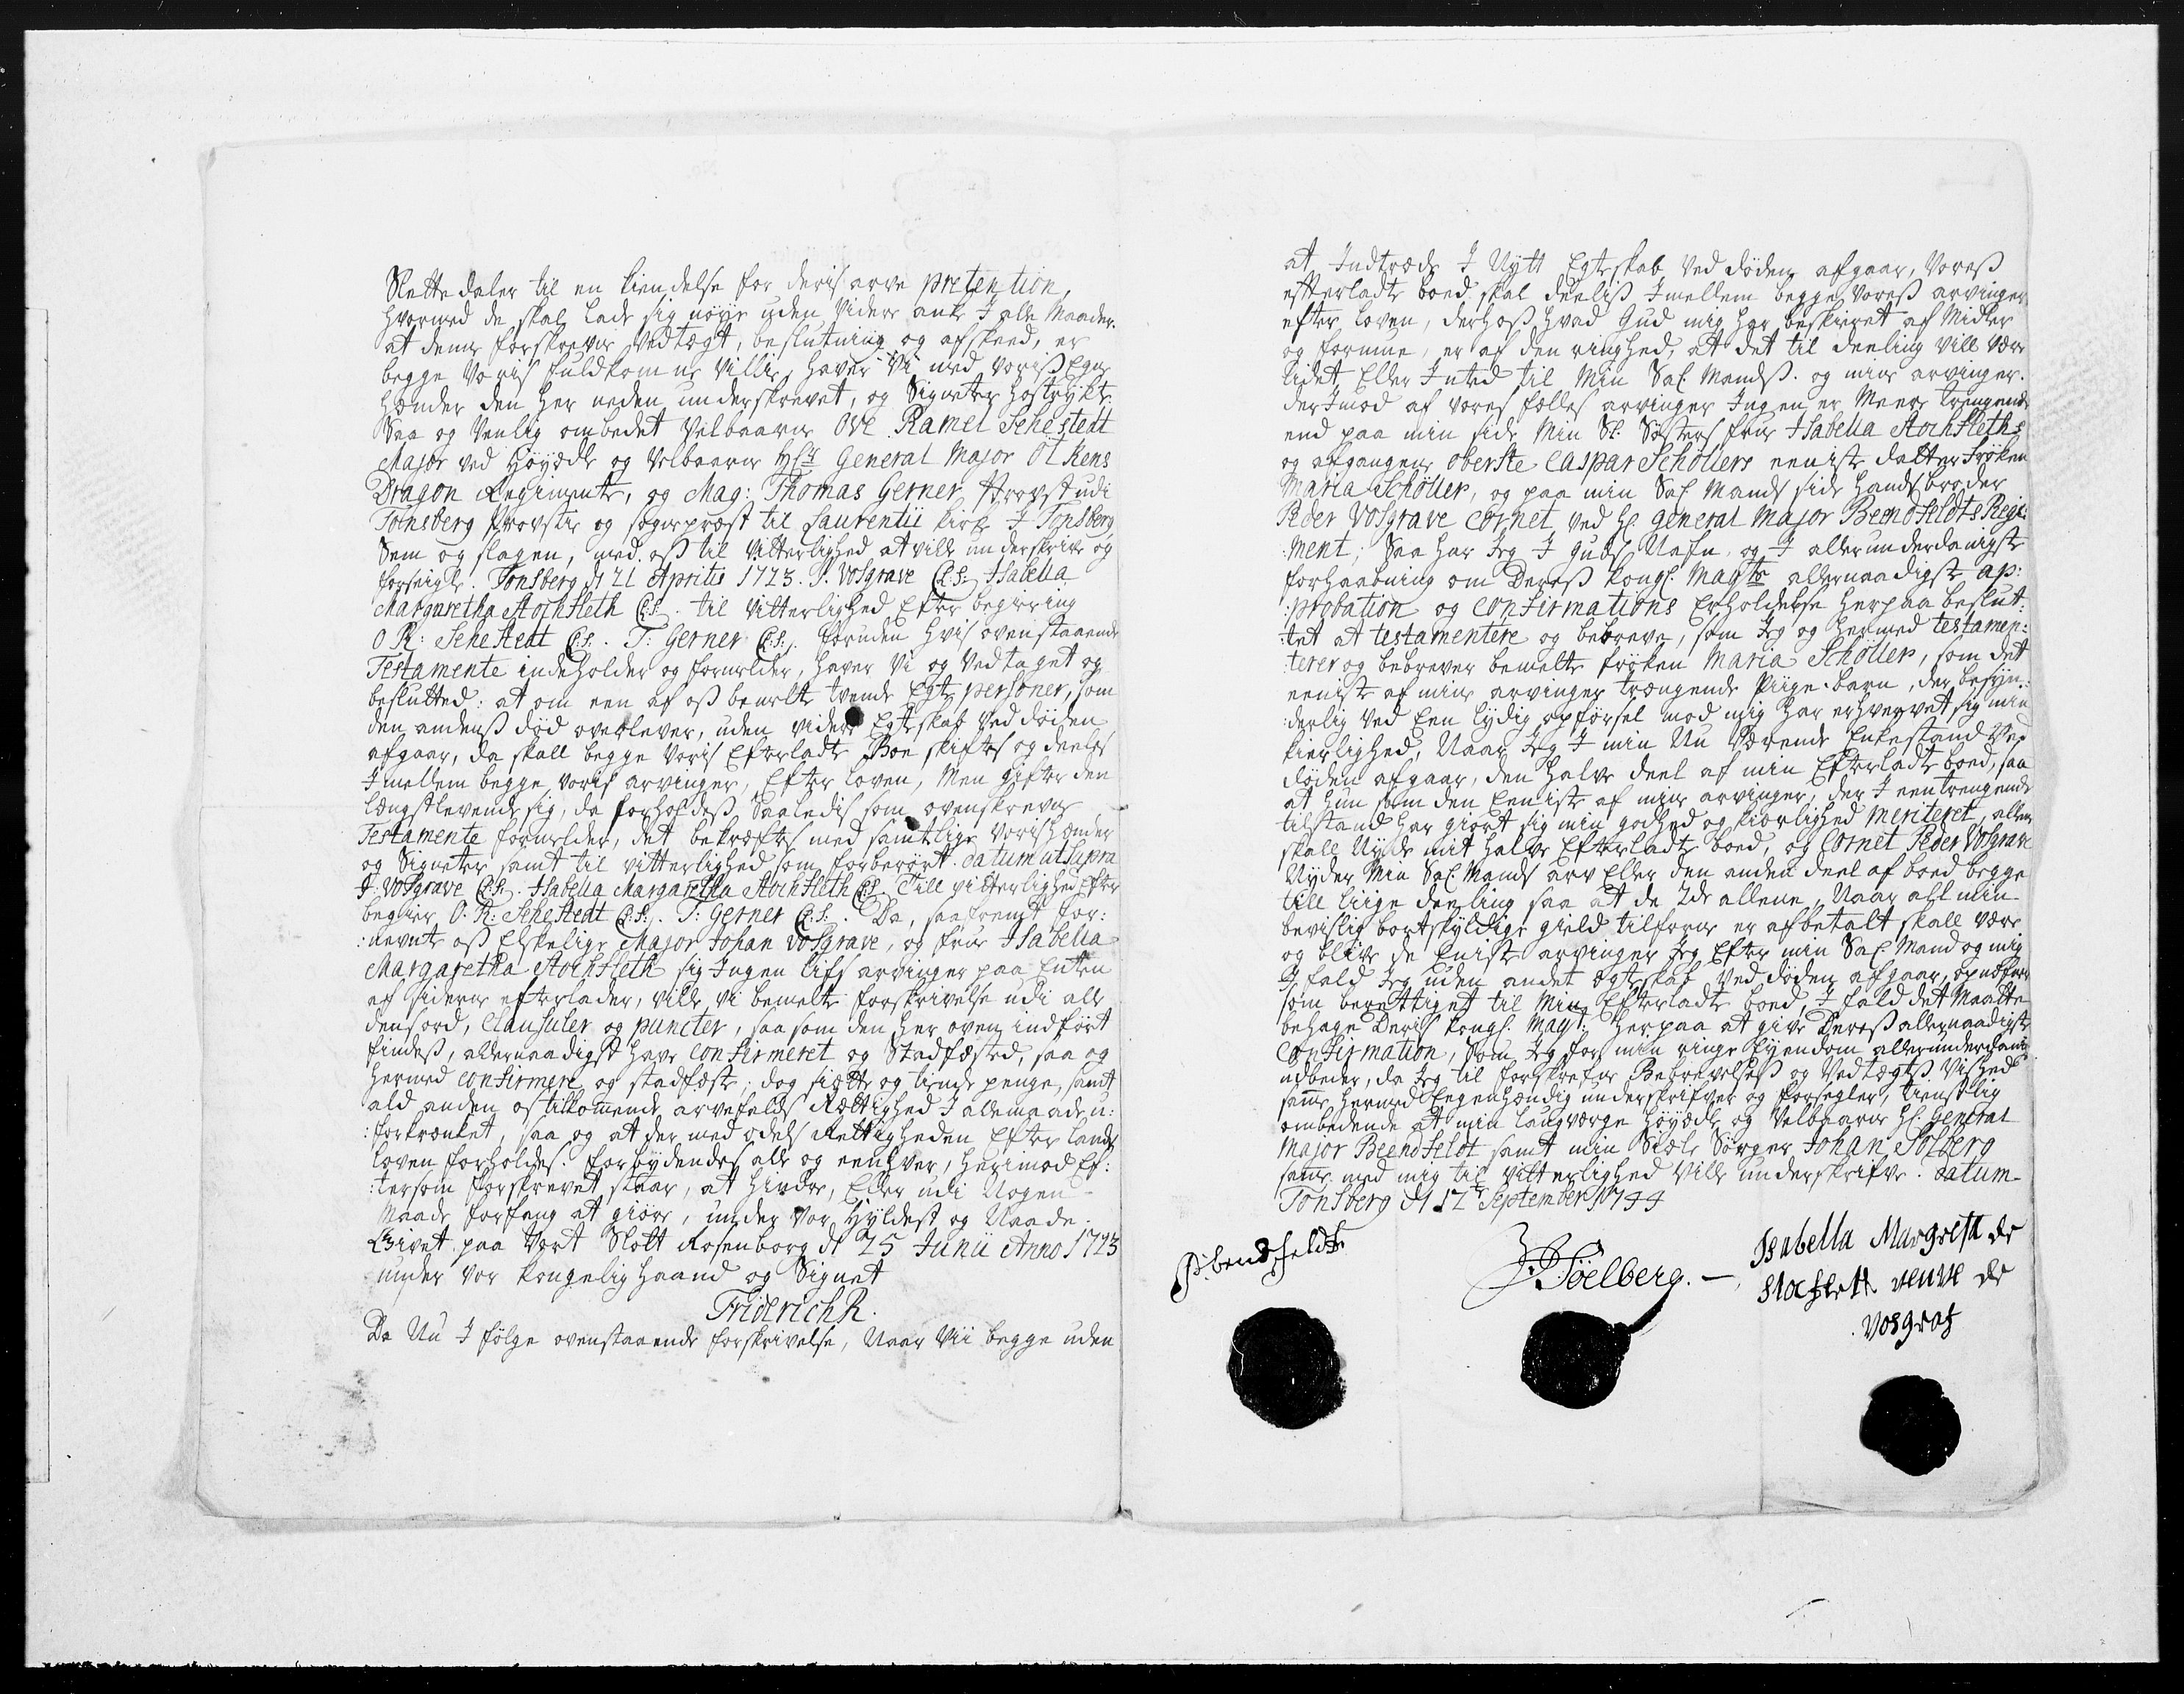 Slette daler til en kiendelse for deris arve pretention,
hvormed de skal lade sig nøye uden Videre anke I alle Maader.
at denne forskrevne Vedtægt, beslutning og afskeed, er
begge Voris fuldkomne Villie, haver Vi med Voris Egne
hænder den her neden underskrevet, og Signeter hostrykt.
Saa og Venlig ombedet Velbaarne Ove Ramel Sehestedt
Major ved Høyædle og Velbaarne Hr General Major Ótkens
Dragon Regimente, og Mag: Thomas Gerner Provst udi
Tønsberg Provstie og sogneprest til Laurentii kirke I Tønsberg
Sem og slagen, med oss til Vitterlighed at ville underskrive og
forseigle. Tønsberg d 21 Aprilis 1723. J. Vosgrave (L.S:) Isabella
Margaretha Stochfleth (L:S). til Vitterlighed Efter begiering
O R: Sehestedt (L:S:). T: Gerner (L:S:). foruden hvis ovenstaaende
Testamente indeholder og formelder, haver Vi og Vedtaget og
besluttet: at om een af oss bemelte tvende Egte personer, som
den andens død overlever, uden videre Egteskab ved døden
afgaar, da skall begge Voris Efterladte Boe skiftes og deeles
Imellem begge voris arvinger, Efter loven, Men gifter den
længstlevende sig, da forholdess Saaledis som ovenskrevne
Testamente formelder, det bekræftes med samtlige Voris hænder
og Signeter samt til vitterlighed som forberørt. datum ut supra
J: Vosgrave (L:S:). Isabella Margaretha Stochfleth (L:S). Till vitterlighed Efter
begier O. R: Sehestedt (L:S:). T: Gerner (L:S:). Da, saafremt for:
:nevnte oss Elskelige Major Johan Vosgrave, og frue Isabella
Margaretha Stochfleth sig Ingen lifs arvinger paa Enten
af siderne efterlader, ville vi bemelte forskrivelse udi alle
dens ord, Clausuler og puncter, saa som den her oven indført
findess, allernaadigst have Confirmeret og Stadfæsted, saa og
hermed Confirmere og stadfæste; dog siætte og tiende penge, samt
ald anden os tilkommende arvefalds Rettighed I allemaade u:
:forkrænket, saa og at der med odels Rettigheden Efter lands
loven forholdes. forbydendes alle og eenhver, herimod Ef:
:tersom forskrevet staar, at hindre, Eller udi Nogen
Maade forfang at giøre, under Vor Hyldest og Naade.
Givet paa Vort Slott Rosenborg d 25 Junii Anno 1723
under vor kongelig haand og Signet
Friderich R.
Da Nu I følge ovenstaaende forskrivelse, Naar Vii begge uden
at Indtræde I Nytt Egteskab ved døden afgaar, Voress
efterladte boed skal deeliss Imellem begge voress arvinger
efter loven, derhoss hvad Gud mig har beskieret af Midler
og formue, er af den ringhed, at det til deeling vill være
lidet Eller Inted til Min Sal: Mandss. og mine arvinger.
derImod af vores fælles arvinger Ingen er Meere trengende
end paa min side Min Sl: Søsters frue Isabella Stochfleths
og afgangne Oberste Caspar Schøllers eeniste datter Frøken
Maria Schøller, og paa min Sal: Mands side hands broder
Peder Vosgrave Cornet ved Hl General Major Beendfeldts Regi:
:ment; Saa har Jeg I Guds Nafn og I allerunderdanigste
forhaabning om Deress kongl: Mayts allernaadigste ap:
:probation og Confirmations Erholdelse herpaa beslut:
:tet at testamentere og bebreve, som Jeg og hermed testamen:
:terer og bebrever bemelte frøken Maria Schøller, som det
eeniste af mine arvinger trængende Piige-barn, der besyn:
:derlig ved Een lydig opførsel mod mig har erhvervet sig min
kierlighed, Naar Jeg I min Nu Værende Enkestand ved
døden afgaar, den halve deel af min Efterladte boed, saa
at hun som den Eeniste af mine arvinger, der I een trengende
tilstand har giort sig min godhed og kierlighed meriteret, allene
skall Nyde mit halve Efterladte boed, og Cornet Peder Vosgrave
Nyder Min Sal: Mands arv Eller den anden deel af boed begge
till liige deeling saa at de 2de allene, Naar all min
bevislig bortskyldige gield tilforne er afbetalt skall være
og blive de Eniste arvinger Jeg Efter min Sal: Mand og mig
I fald Jeg uden andet egteskab ved døden afgaar,
som berettiget til Min Efterladte boed, I fald det Maatte
behage Deris kongl: Mayt: herpaa at give Deress allernaadigste
Confirmation, Som Jeg for min ringe Eyendom allerunderdanigst
udbeder, da Jeg til forskrefne Bebrevelsess og Vedtægts Vished
samme hermed Eegenhændig underskrifver og forsegler, tienstlig
ombedende at min laugverge Høyædle og Velbaarne Hl: General
Major Beendfeldt samt min Siæle Sørger Johan Sølberg
samme med mig til vitterlighed Ville underskrifve. datum
Tønsberg d 12te September 1744
bendfeldt
J Søelberg.
Isabella Margreta de
stochflett venve de
Vosgraf